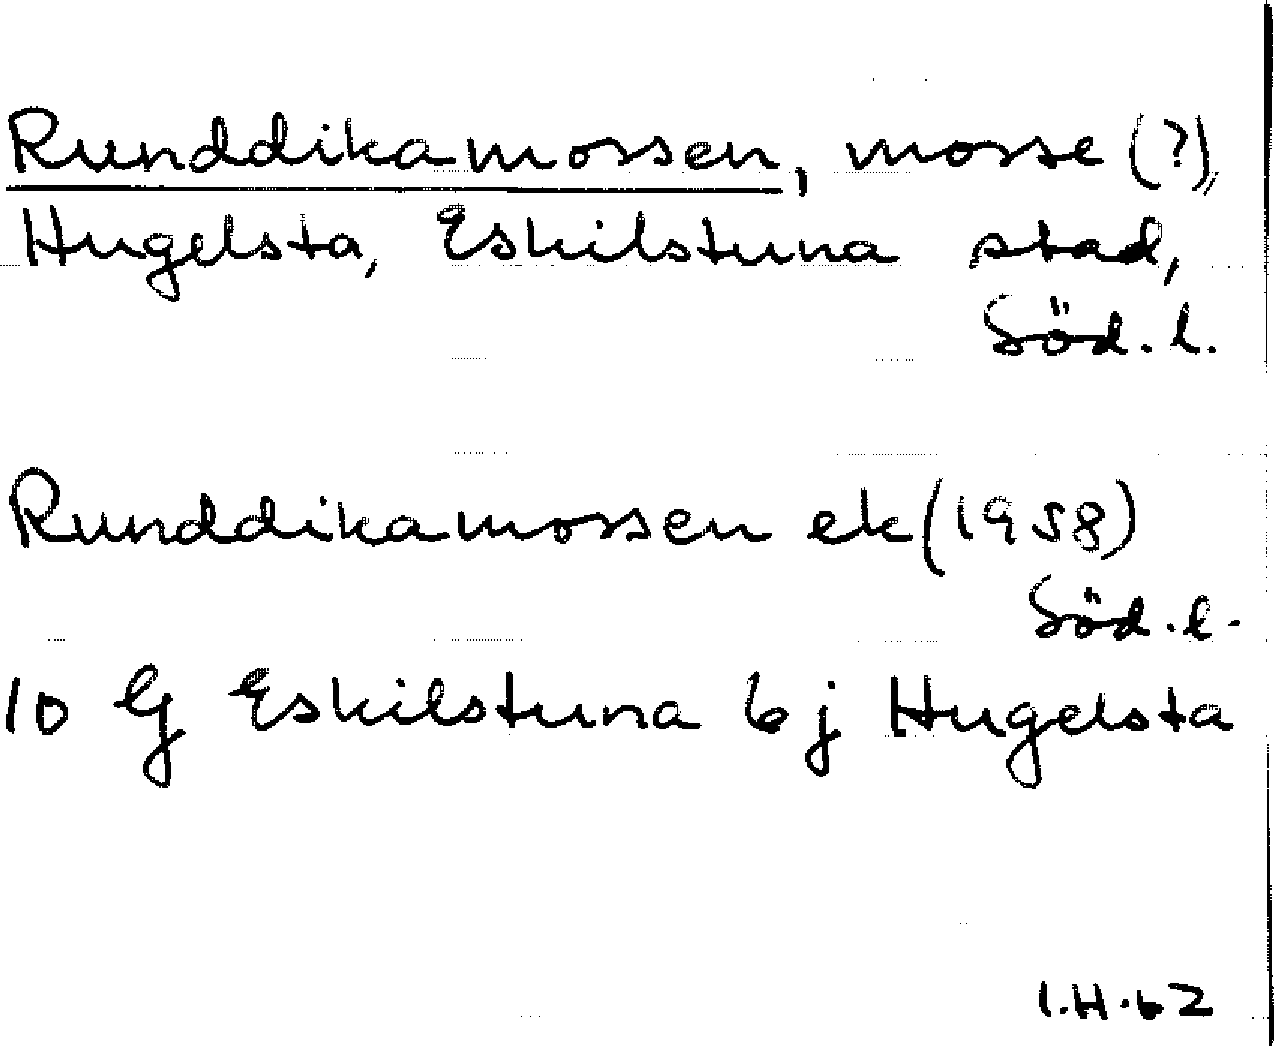 Runddikamossen, mosse (?),
Hugelsta, Eskilstuna stad,
Söd. l.
Runddikamossen ek (1958)
Söd. l.
10 G Eskilstuna 6 j Hugelsta
I.H. 62